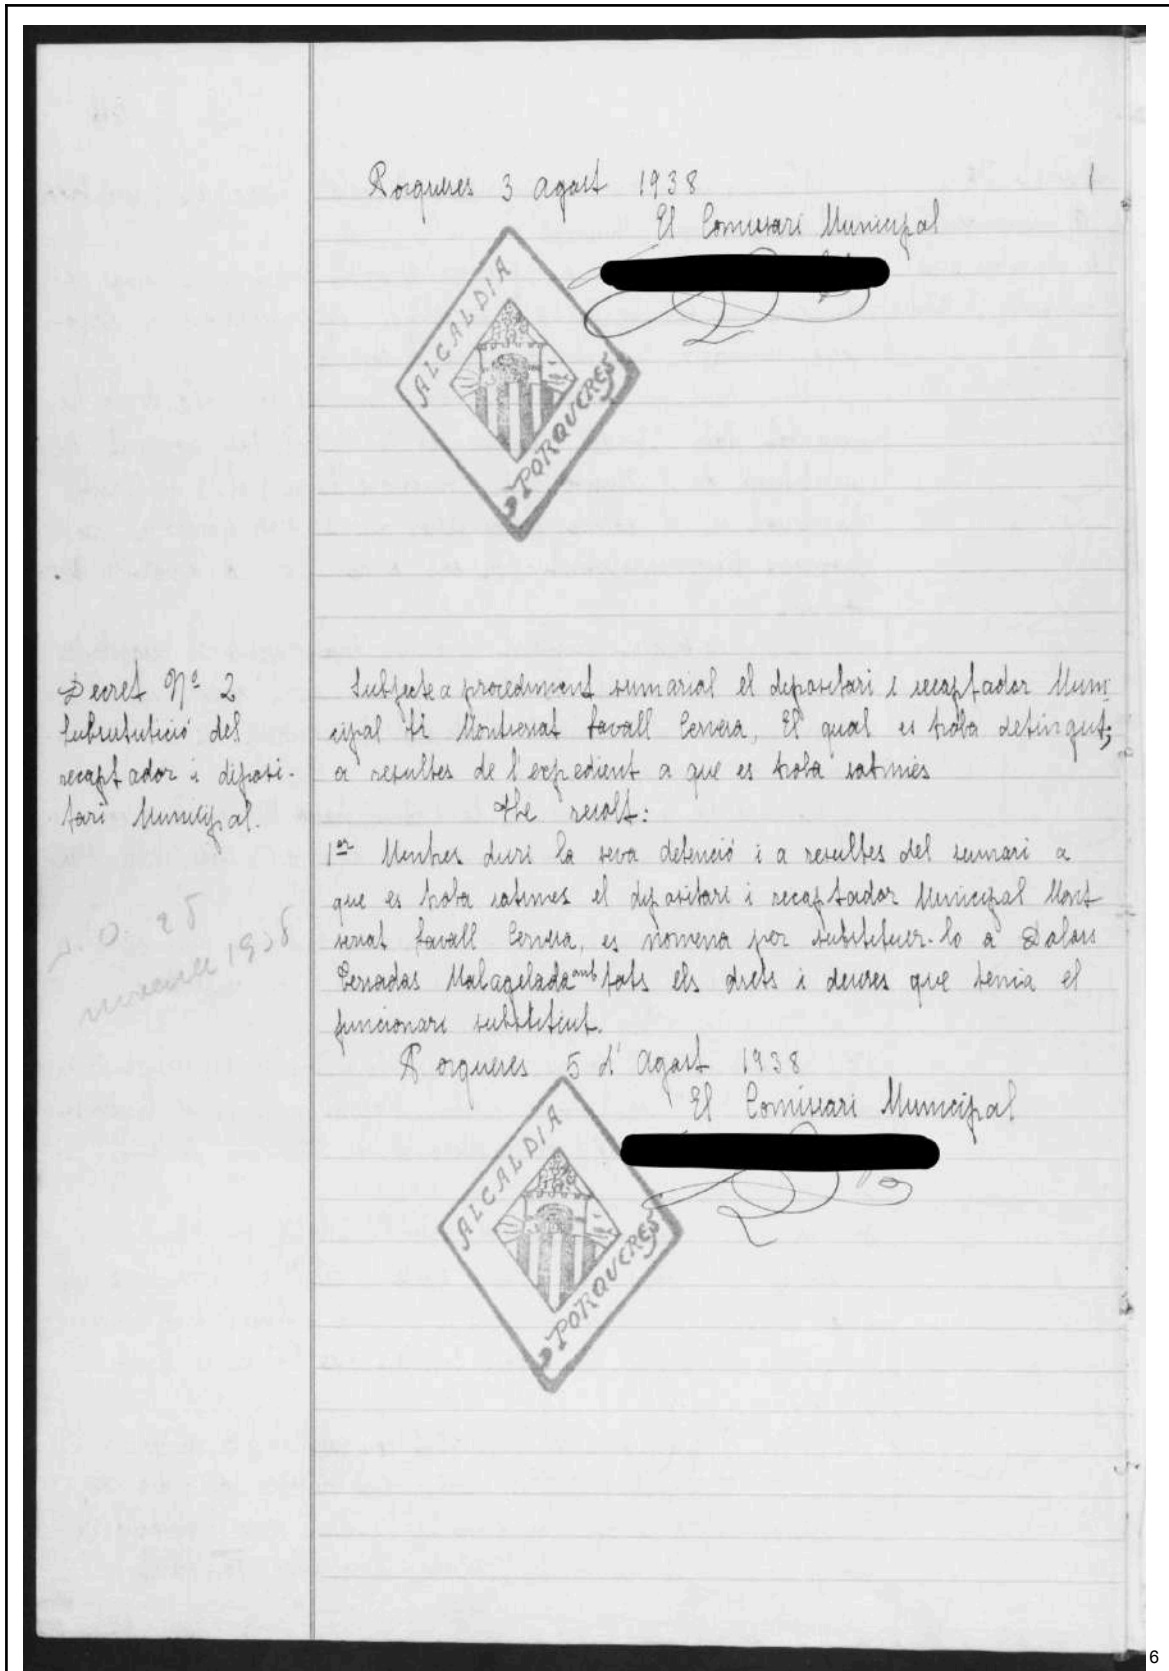 Porqueres 3 agost 1938
1
El Comissari Municipal
ALCALDIA
PORQUERES
Decret Nº 2
Substitució del
recaptador i diposi-
tari Municipal.
Subjecte a procediment sumarial el dipositari i recaptador Muni
cipal Montserrat Cervera, El qual es troba detingut;
a resultes de l'expedient a que es troba sotmés
He resolt:
1er Mentres duri la seva detenció i a resultes del sumari a
que es troba sotmes el dipositari i recaptador Municipal Mont
serrat Cervera, es nomena per substituir-lo a
Malagelada amb tots els drets i deures que tenia el
funcionari substituit.
Porqueres 5 d'Agost 1938
El Comissari Municipal
ALCALDIA
PORQUERES
6